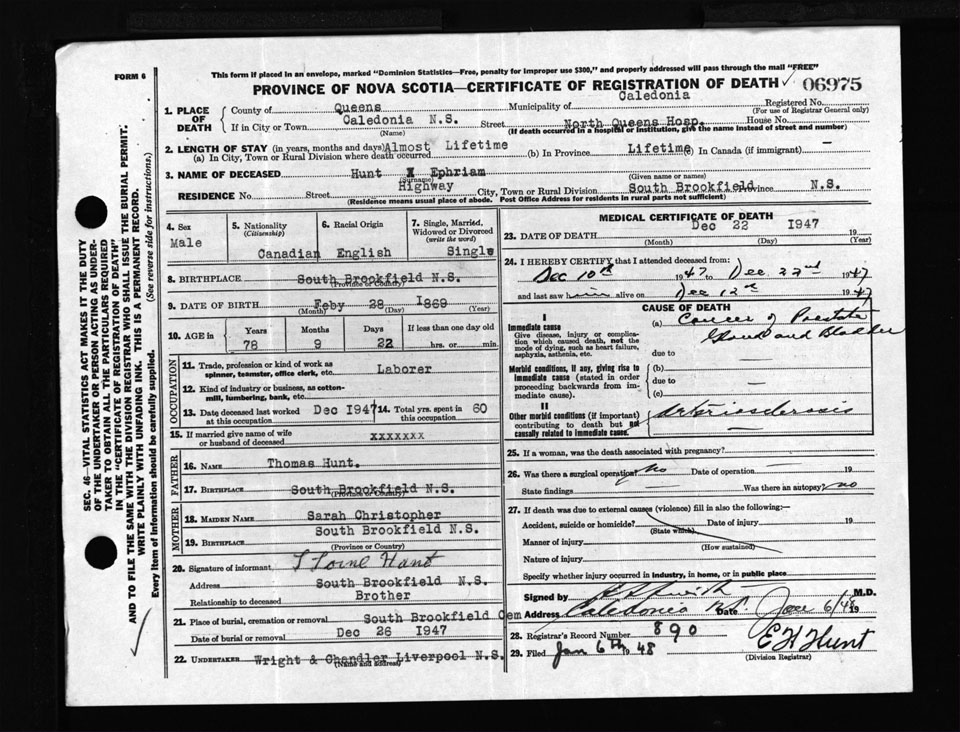 FORM 6
This form if placed in an envelope, marked "Dominion Statistics—Free, penalty for improper use $300," and properly addressed will pass through the mail "FREE"
PROVINCE OF NOVA SCOTIA—CERTIFICATE OF REGISTRATION OF DEATH ✓ 06975
1. PLACE OF DEATH
County of Queens Municipality of Caledonia Registered No.
(For use of Registrar General only)
If in City or Town Caledonia N.S. Street North Queens Hosp. House No.
(Name) (If death occurred in a hospital or institution, give the name instead of street and number)
2. LENGTH OF STAY (in years, months and days) Almost Lifetime
(a) In City, Town or Rural Division where death occurred (b) In Province Lifetime (c) In Canada (if immigrant) —
3. NAME OF DECEASED Hunt X Ephriam
(Surname) (Given name or names)
RESIDENCE No. Street Highway City, Town or Rural Division South Brookfield Province N.S.
(Residence means usual place of abode. Post Office Address for residents in rural parts not sufficient)
4. Sex Male
5. Nationality (Citizenship) Canadian
6. Racial Origin English
7. Single, Married, Widowed or Divorced (write the word) Single
8. BIRTHPLACE South Brookfield N.S.
(Province or Country)
9. DATE OF BIRTH Feby 28 1869
(Month) (Day) (Year)
10. AGE in Years Months Days If less than one day old
78 9 22 hrs. or min.
OCCUPATION
11. Trade, profession or kind of work as spinner, teamster, office clerk, etc. Laborer
12. Kind of industry or business, as cotton-mill, lumbering, bank, etc.
13. Date deceased last worked at this occupation Dec 1947
14. Total yrs. spent in this occupation 60
15. If married give name of wife or husband of deceased xxxxxxx
FATHER
16. NAME Thomas Hunt.
17. BIRTHPLACE South Brookfield N.S.
(Province or Country)
MOTHER
18. MAIDEN NAME Sarah Christopher
19. BIRTHPLACE South Brookfield N.S.
(Province or Country)
20. Signature of informant Hunt
Address South Brookfield N.S.
Relationship to deceased Brother
21. Place of burial, cremation or removal South Brookfield Cem
Date of burial or removal Dec 26 1947
22. UNDERTAKER Wright & Chandler Liverpool N.S.
(Name and address)
MEDICAL CERTIFICATE OF DEATH
23. DATE OF DEATH Dec 22 1947 19
(Month) (Day) (Year)
24. I HEREBY CERTIFY that I attended deceased from:
Dec 10th 1947 to Dec. 22nd 1947
and last saw him alive on Dec 12th 1947
CAUSE OF DEATH
I
Immediate cause
Give disease, injury or complication which caused death, not the mode of dying, such as heart failure, asphyxia, asthenia, etc.
(a) Cancer of Prostate
Gland and Bladder
due to —
Morbid conditions, if any, giving rise to immediate cause (stated in order proceeding backwards from immediate cause).
(b)
due to —
(c)
II
Other morbid conditions (if important) contributing to death but not causally related to immediate cause.
Arteriosclerosis
—
25. If a woman, was the death associated with pregnancy? —
26. Was there a surgical operation? No Date of operation — 19
State findings — Was there an autopsy? no
27. If death was due to external causes (violence) fill in also the following:—
Accident, suicide or homicide? Date of injury 19
(State which)
Manner of injury
(How sustained)
Nature of injury
Specify whether injury occurred in industry, in home, or in public place
Signed by M.D.
Address Caledonia Date Jan 6/48 19
28. Registrar's Record Number 890
29. Filed Jan 6th 1948 E H Hunt
(Division Registrar)
SEC. 46—VITAL STATISTICS ACT MAKES IT THE DUTY
OF THE UNDERTAKER OR PERSON ACTING AS UNDER-
TAKER TO OBTAIN ALL THE PARTICULARS REQUIRED
IN THE "CERTIFICATE OF REGISTRATION OF DEATH"
AND TO FILE THE SAME WITH THE DIVISION REGISTRAR WHO SHALL ISSUE THE BURIAL PERMIT.
WRITE PLAINLY WITH UNFADING INK. THIS IS A PERMANENT RECORD.
Every item of information should be carefully supplied. (See reverse side for instructions.)